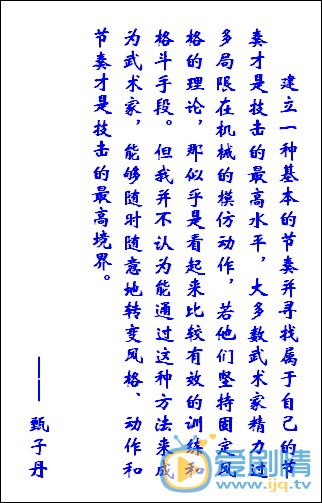 建立一种基本的节奏并寻找属于自己的节
奏才是技击的最高水平，大多数武术家精力过
多局限在机械的模仿动作，若他们坚持固定风
格的理论，那似乎是看起来比较有效的训练和
格斗手段。但我并不认为能通过这种方法来成
为武术家，能够随时随意地转变风格、动作和
节奏才是技击的最高境界。
——甄子丹
爱剧情
www.ijq.tv